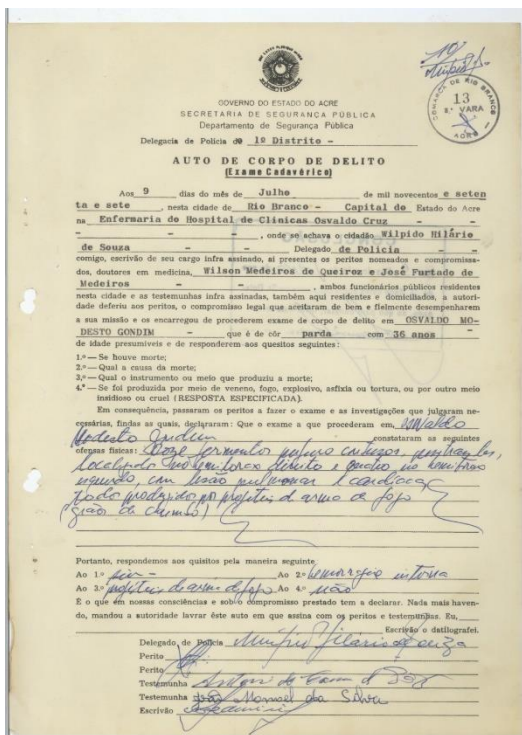 19
13
COMARCA DE RIO BRANCO
VARA
ACRE
GOVERNO DO ESTADO DO ACRE
SECRETARIA DE SEGURANÇA PÚBLICA
Departamento de Segurança Pública
Delegacia de Polícia do 1º Distrito -
AUTO DE CORPO DE DELITO
(Exame Cadavérico)
Aos 9 dias do mês de Julho de mil novecentos e seten
ta e sete , nesta cidade de Rio Branco - Capital do Estado do Acre
na Enfermaria do Hospital de Clinicas Osvaldo Cruz - -
- - - , onde se achava o cidadão Wilpido Hilário
de Souza - - Delegado de Polícia - -
comigo, escrivão de seu cargo infra assinado, aí presentes os peritos nomeados e compromissa-
dos, doutores em medicina, Wilson Medeiros de Queiroz e José Furtado de
Medeiros - - - , ambos funcionários públicos residentes
nesta cidade e as testemunhas infra assinadas, também aqui residentes e domiciliados, a autori-
dade deferiu aos peritos, o compromisso legal que aceitaram de bem e fielmente desempenharem
a sua missão e os encarregou de procederem exame de corpo de delito em OSVALDO MO-
DESTO GONDIM - que é de côr parda com 36 anos
de idade presumíveis e de responderem aos quesitos seguintes :
1.º — Se houve morte;
2.º — Qual a causa da morte;
3.º — Qual o instrumento ou meio que produziu a morte;
4.º — Se foi produzida por meio de veneno, fogo, explosivo, asfixia ou tortura, ou por outro meio
insidioso ou cruel (RESPOSTA ESPECIFICADA).
Em consequência, passaram os peritos a fazer o exame e as investigações que julgaram ne-
cessárias, findas as quais, declararam : Que o exame a que procederam em, Osvaldo
Modesto Gondim constataram as seguintes
ofensas físicas: Doze ferimentos pérfuro contusos, penetrantes,
localizado no hemitorax direito e quatro no hemitorax
esquerdo, com lesão pulmonar e cardiaca,
todo produzido por projeteis de arma de fogo
(grãos de chumbo)
Portanto, respondemos aos quisitos pela maneira seguinte
Ao 1.º sim - Ao 2.º hemorragia interna
Ao 3.º projeteis de arma de fogo Ao 4.º não
É o que em nossas consciências e sob o compromisso prestado tem a declarar. Nada mais haven-
do, mandou a autoridade lavrar êste auto em que assina com os peritos e testemunhas. Eu,
Escrivão o datilografei.
Delegado de Polícia Hilário de Souza
Perito
Perito
Testemunha
Testemunha João Manoel da Silva
Escrivão